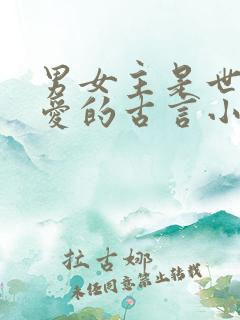 男女主呆世
爱的古言小
拉古娜
未经同意禁止转载